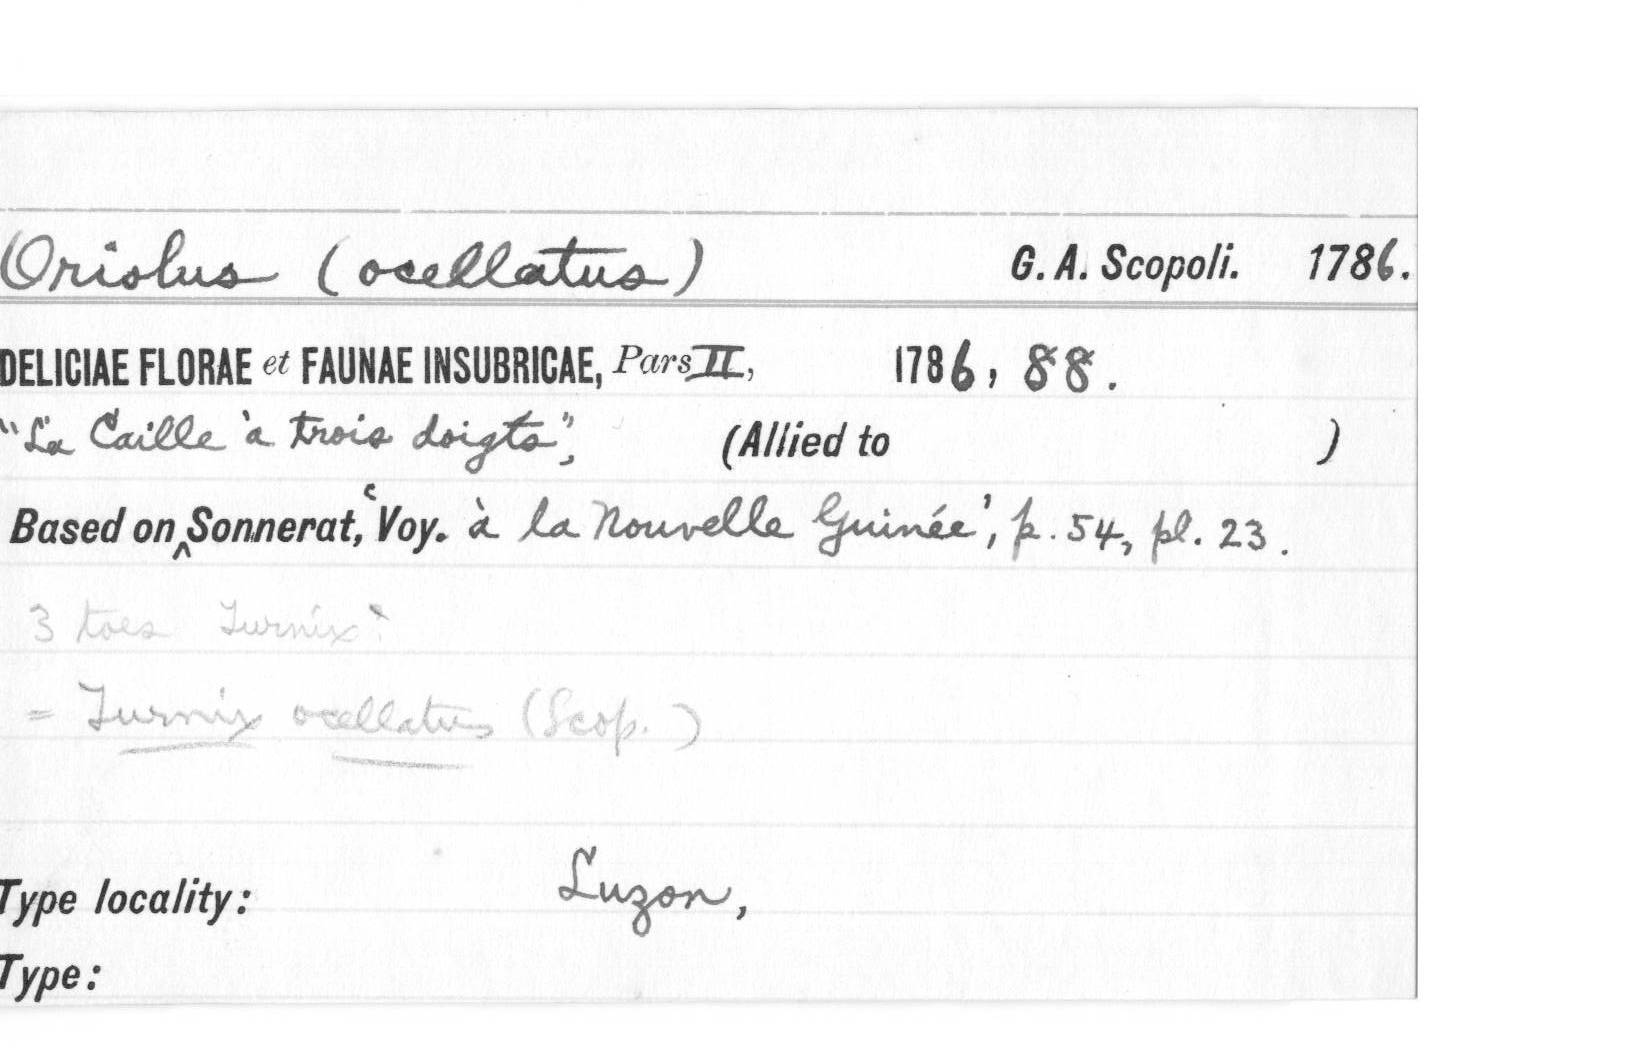 Oriolus (ocellatus) G. A. Scopoli. 1786.
DELICIAE FLORAE et FAUNAE INSUBRICAE, Pars II, 1786, 88.
"La Caille à trois doigts", (Allied to )
Based on ^ Sonnerat, 'Voy. à la Nouvelle Guinée', p. 54, pl. 23.
3 toes Turnix?
= Turnix ocellatus (Scop.)
Type locality: Luzon,
Type: